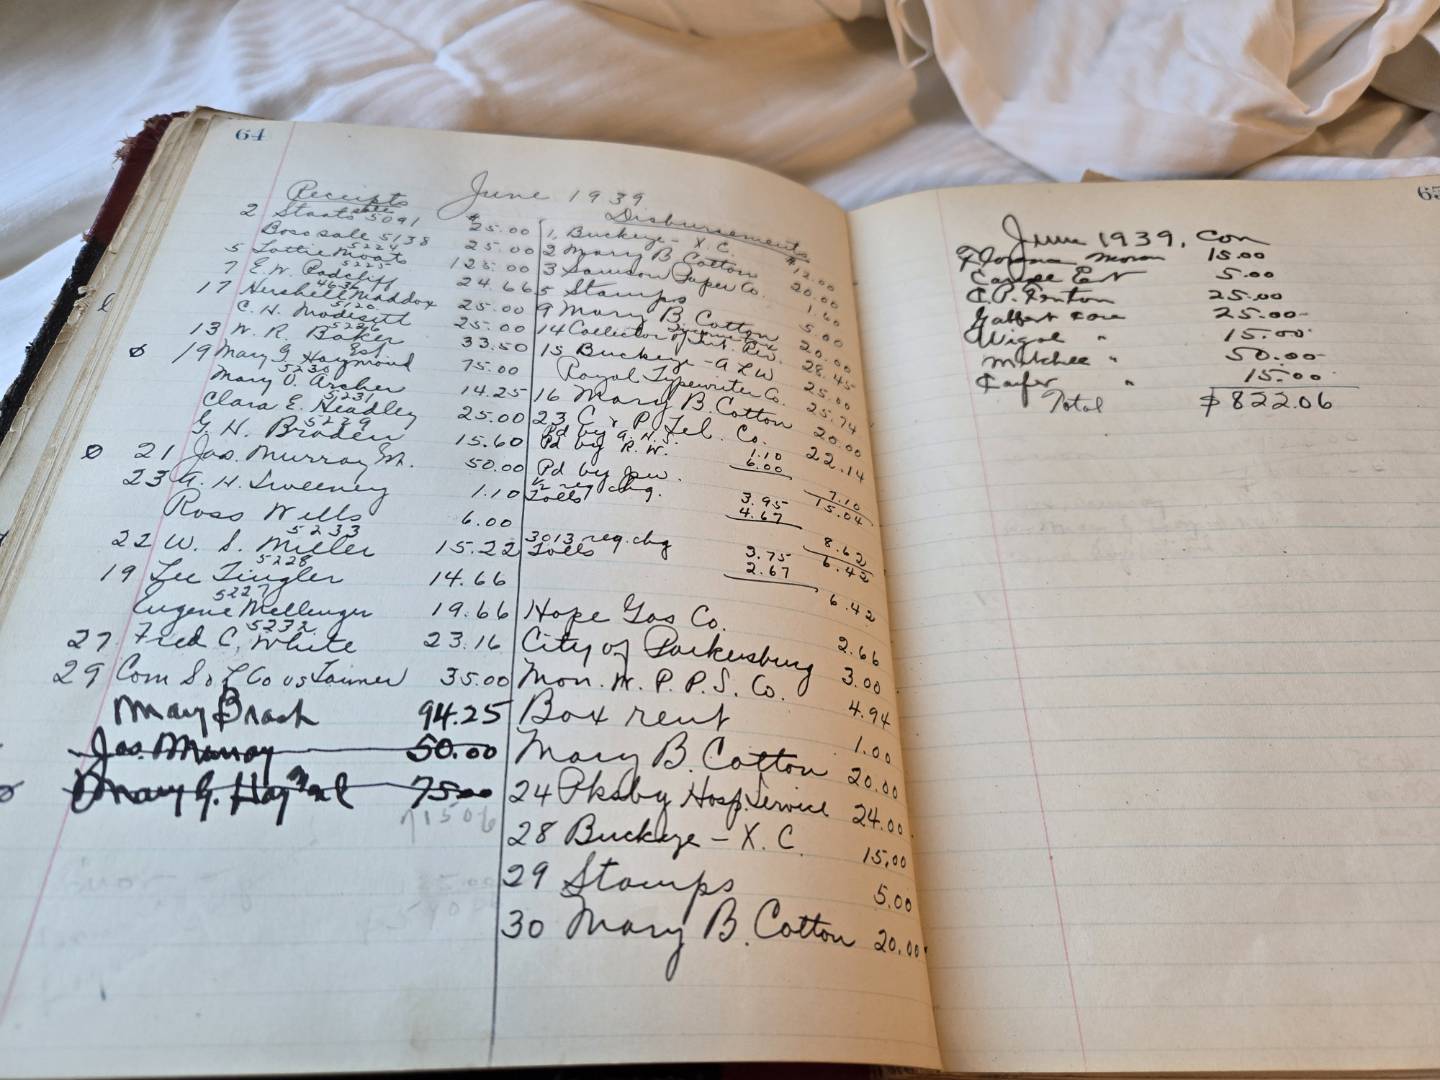 64
June 1939
Receipts
2 Staats 5091 $25.00
Boso sale 5138 25.00
5 Lottie Moats 5224 125.00
7 E.W. Radcliff 5225 24.66
17 Hershell Maddox 4636 25.00
C. H. Modesitt 5120 25.00
13 W. R. Baker 5226 33.50
ø 19 Mary G Haymond Est 75.00
Mary V. Archer 5230 14.25
Clara E. Headley 5231 25.00
G. H. Braden 5229 15.60
ø 21 Jas. Murray 50.00
23 G. H. Sweeney 1.10
Ross Wells 6.00
22 W. S. Miller 5233 15.22
19 Lee Tingler 5228 14.66
Eugene Mellenger 5227 19.66
27 Fred C. White 5232 23.16
29 Com S & L Co vs Tanner 35.00
Mary Brash 94.25
Jas. Murray 50.00
Mary G. 75.00
71506
Disbursements
1, Buckeye - X. C. $12.00
2 Mary B Cotton 20.00
3 Samson Paper Co. 1.60
5 Stamps 5.00
9 Mary B. Cotton 20.00
14 Collector of Int. Rev. 28.45
15 Buckeye - A L W 25.00
Royal Typewriter Co. 25.74
16 Mary B. Cotton 20.00
23 C & P. Tel. Co. 22.14
Pd by G. H. S. 1.10
Pd by R. W. 6.00 7.10
Pd by 15.04
1/2 reg chg. 3.95
Tolls 4.67 8.62
6.42
3013 reg. chg 3.75
Tolls 2.67 6.42
Hope Gas Co. 2.66
City of Parkersburg 3.00
Mon. W. P. P. S. Co. 4.94
Box rent 1.00
Mary B. Cotton 20.00
24 Pksbg Hosp. Service 24.00
28 Buckeye - X. C. 15.00
29 Stamps 5.00
30 Mary B. Cotton 20.00
65
June 1939, Con
Moran 15.00
5.00
C.P. Fenton 25.00
25.00
Wigal " 15.00
" 50.00
" 15.00
Total $822.06